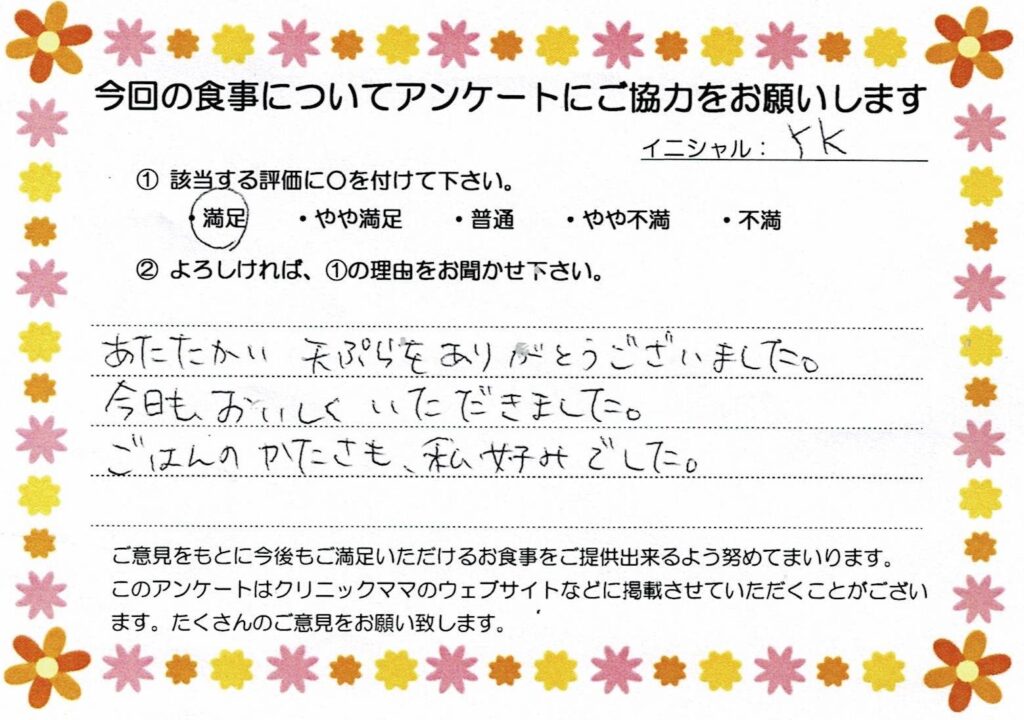 今回の食事についてアンケートにご協力をお願いします
イニシャル： YK
① 該当する評価に〇を付けて下さい。
・満足 ・やや満足 ・普通 ・やや不満 ・不満
② よろしければ、①の理由をお聞かせ下さい。
あたたかい 天ぷらをありがとうございました。
今日も、おいしく いただきました。
ごはんの かたさも、私好みでした。
ご意見をもとに今後もご満足いただけるお食事をご提供出来るよう努めてまいります。
このアンケートはクリニックママのウェブサイトなどに掲載させていただくことがござい
ます。たくさんのご意見をお願い致します。